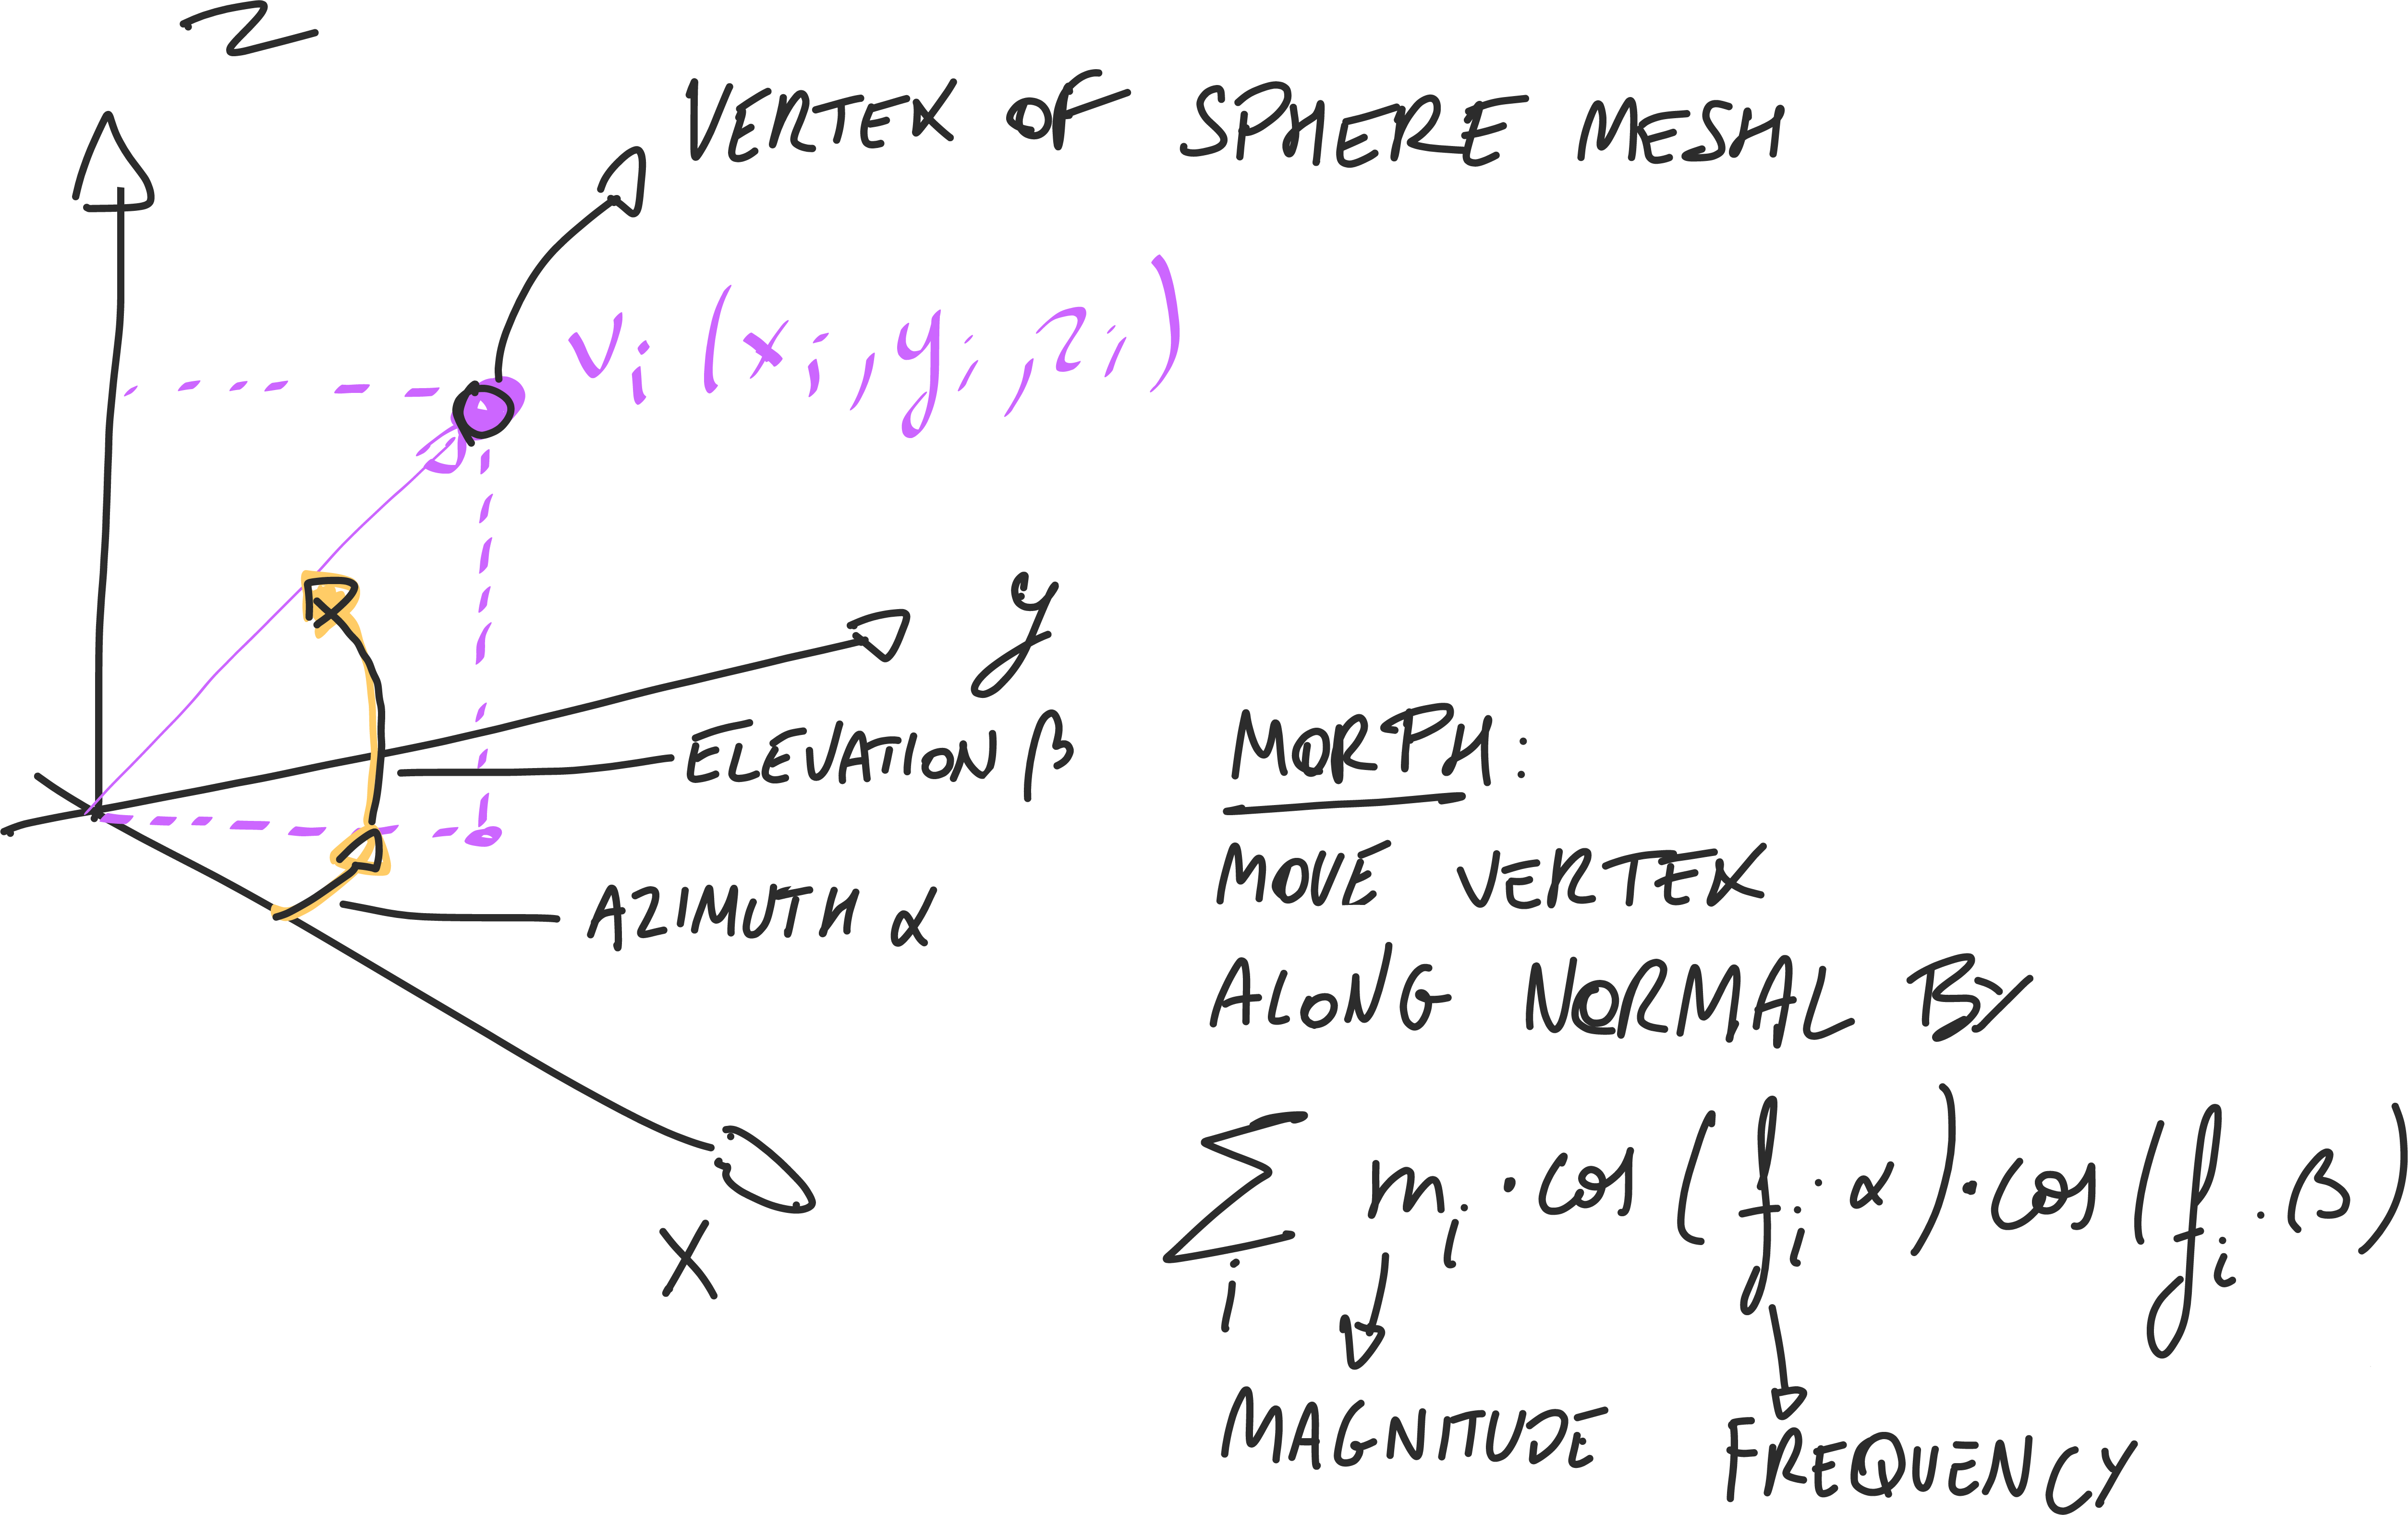 Z
VERTEX OF SPHERE MESH
Vi (xi, yi, zi)
y
ELEVATION β
AZIMUTH α
X
MORPH:
MOVE VERTEX
ALONG NORMAL BY
∑i mi · cos(fi · α) · cos(fi · β)
MAGNITUDE
FREQUENCY